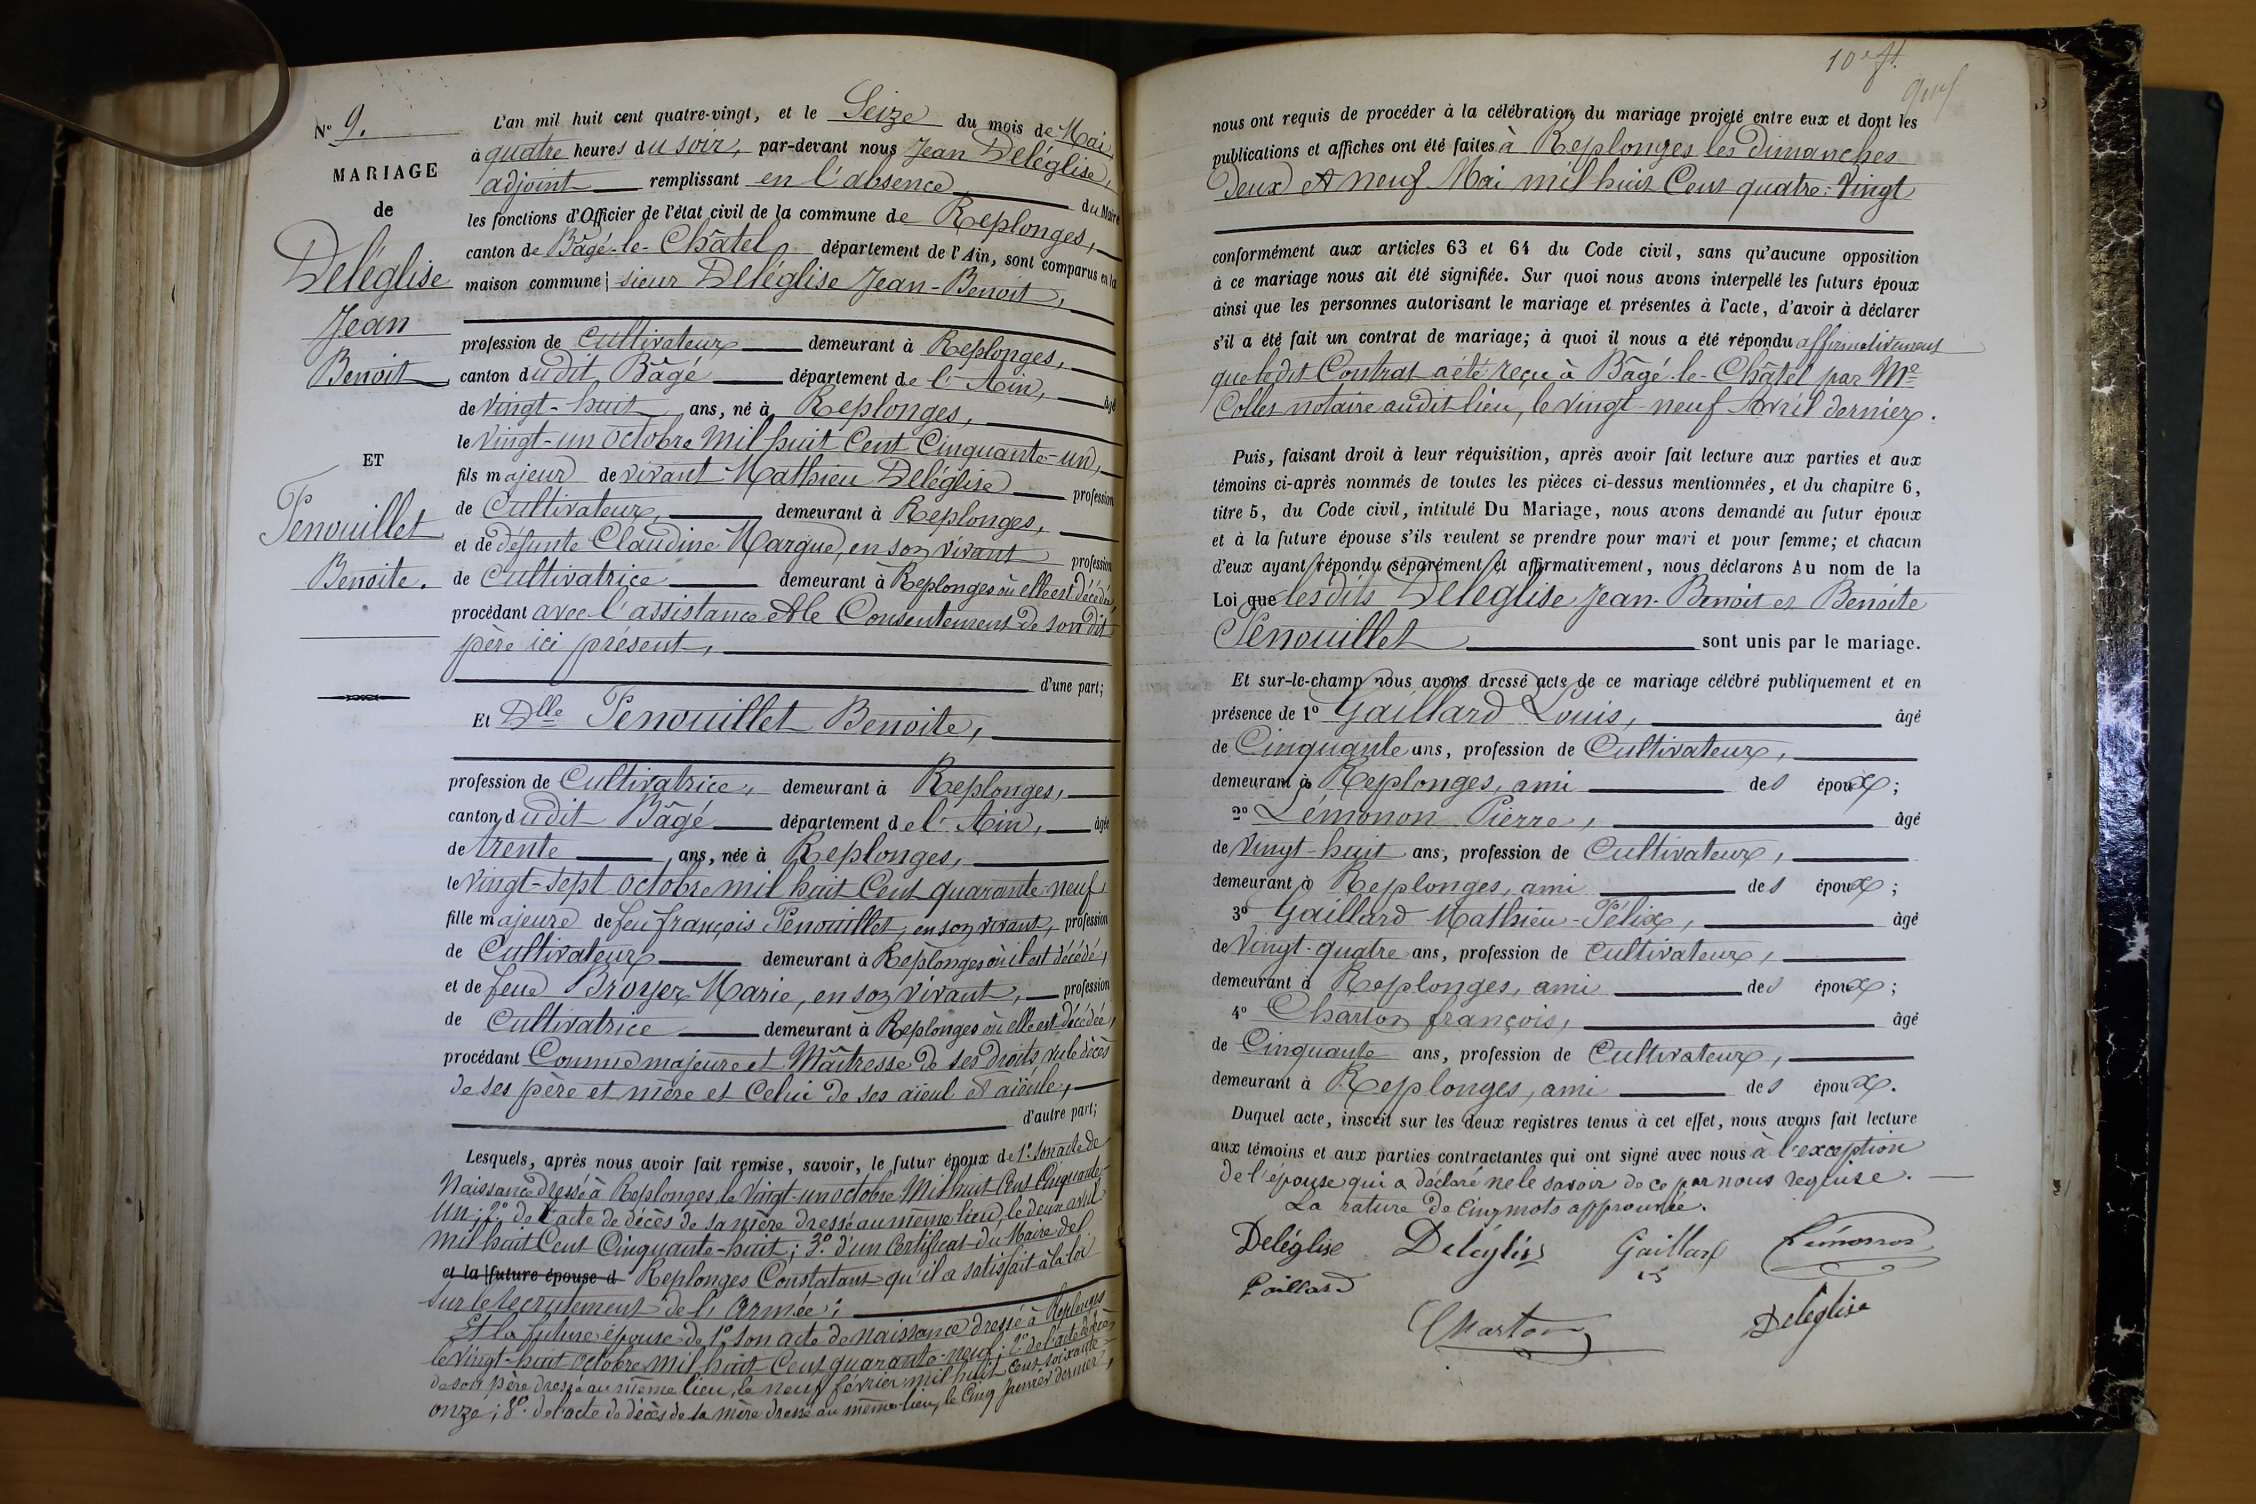 N° 9.
MARIAGE
de
Deléglise
Jean
Benoit
ET
Penouillet
Benoite.
L'an mil huit cent quatre-vingt, et le Seize du mois de Mai,
à quatre heures du soir, par-devant nous Jean Deléglise,
adjoint remplissant en l'absence du Maire
les fonctions d'Officier de l'état civil de la commune de Replonges,
canton de Bâgé-le-Châtel département de l'Ain, sont comparus en la
maison commune; sieur Deléglise Jean-Benoit,
profession de Cultivateur demeurant à Replonges,
canton dudit Bâgé département de l'Ain, âgé
de Vingt-huit ans, né à Replonges,
le Vingt-un octobre Mil huit Cent Cinquante-un,
fils majeur de vivant Mathieu Deléglise profession
de Cultivateur, demeurant à Replonges,
et de défunte Claudine Margue, en son vivant profession
de Cultivatrice demeurant à Replonges où elle est décédée,
procédant avec l'assistance et le Consentement de son dit
père ici présent,
d'une part;
Et Dlle Penouillet Benoite,
profession de Cultivatrice, demeurant à Replonges,
canton dudit Bâgé département de l'Ain, âgée
de trente ans, née à Replonges,
le Vingt-sept octobre mil huit Cent quarante-neuf,
fille majeure de feu françois Penouillet, en son vivant, profession
de Cultivateur demeurant à Replonges où il est décédé,
et de feue Broyer Marie, en son vivant, profession
de Cultivatrice demeurant à Replonges où elle est décédée,
procédant Comme majeure et Maîtresse de ses droits, vu le décès
de ses père et mère et Celui de ses aïeul et aïeule,
d'autre part;
Lesquels, après nous avoir fait remise, savoir, le futur époux de 1° son acte de
Naissance dressé à Replonges le Vingt-un octobre Mil huit Cent Cinquante-
un; 2° de l'acte de décès de sa mère dressé au même lieu, le deux avril
mil huit Cent Cinquante-huit; 3° d'un Certificat du Maire de
et la future épouse d Replonges Constatant qu'il a satisfait à la loi
sur le recrutement de l'armée;
Et la future épouse de 1° son acte de naissance dressé à Replonges
le Vingt-huit octobre mil huit Cent quarante-neuf; 2° de l'acte de décès
de son père dressé au même lieu, le neuf février mil huit cent soixante-
onze; 3° de l'acte de décès de sa mère dressé au même lieu, le Cinq Janvier dernier,
10e ft.
nous ont requis de procéder à la célébration du mariage projeté entre eux et dont les
publications et affiches ont été faites à Replonges les dimanches
deux et neuf Mai mil huit Cent quatre-vingt
conformément aux articles 63 et 64 du Code civil, sans qu'aucune opposition
à ce mariage nous ait été signifiée. Sur quoi nous avons interpellé les futurs époux
ainsi que les personnes autorisant le mariage et présentes à l'acte, d'avoir à déclarer
s'il a été fait un contrat de mariage; à quoi il nous a été répondu affirmativement
que ledit Contrat a été reçu à Bâgé-le-Châtel par Me
Collet notaire audit lieu, le vingt-neuf Avril dernier.
Puis, faisant droit à leur réquisition, après avoir fait lecture aux parties et aux
témoins ci-après nommés de toutes les pièces ci-dessus mentionnées, et du chapitre 6,
titre 5, du Code civil, intitulé Du Mariage, nous avons demandé au futur époux
et à la future épouse s'ils veulent se prendre pour mari et pour femme; et chacun
d'eux ayant répondu séparément et affirmativement, nous déclarons Au nom de la
Loi que lesdits Deléglise Jean-Benoit et Benoite
Penouillet sont unis par le mariage.
Et sur-le-champ nous avons dressé acte de ce mariage célébré publiquement et en
présence de 1° Gaillard Louis, âgé
de Cinquante ans, profession de Cultivateur,
demeurant à Replonges, ami des époux;
2° Lémonon Pierre, âgé
de Vingt-huit ans, profession de Cultivateur,
demeurant à Replonges, ami des époux;
3° Gaillard Mathieu-Félix, âgé
de Vingt-quatre ans, profession de Cultivateur,
demeurant à Replonges, ami des époux;
4° Charton françois, âgé
de Cinquante ans, profession de Cultivateur,
demeurant à Replonges, ami des époux.
Duquel acte, inscrit sur les deux registres tenus à cet effet, nous avons fait lecture
aux témoins et aux parties contractantes qui ont signé avec nous à l'exception
de l'épouse qui a déclaré ne le savoir de ce par nous requise.
La rature de Cinq mots approuvée.
Deléglise Deléglise Gaillard Lémonon
Gaillard
Charton Deléglise